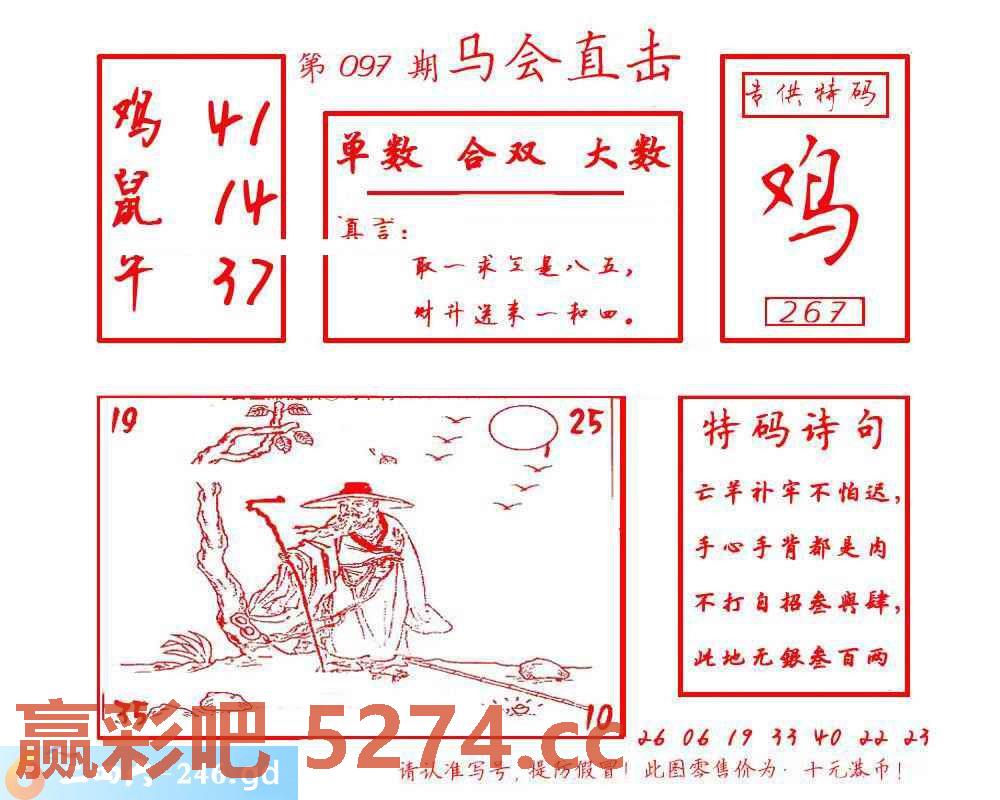 第 097 期 马会直击
鸡 41
鼠 14
牛 37
单数 合双 大数
真言:
取一求三是八五,
财升送来一和四。
专供特码
鸡
267
19
25
35
10
特码诗句
亡羊补牢不怕迟,
手心手背都是肉
不打自招叁與肆,
此地无銀叁百两
26 06 19 33 40 22 23
赢彩吧 5274.cc
-246.gd
请认准写号,提防假冒!此图零售价为·十元港币!